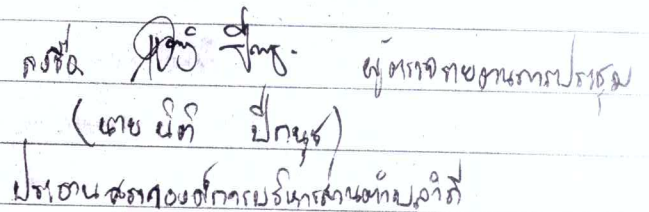 ลงชื่อ ผู้ตรวจรายงานการประชุม
(นาย นิติ ปีกนุช)
ประธานสภาองค์การบริหารส่วนตำบลลำภี